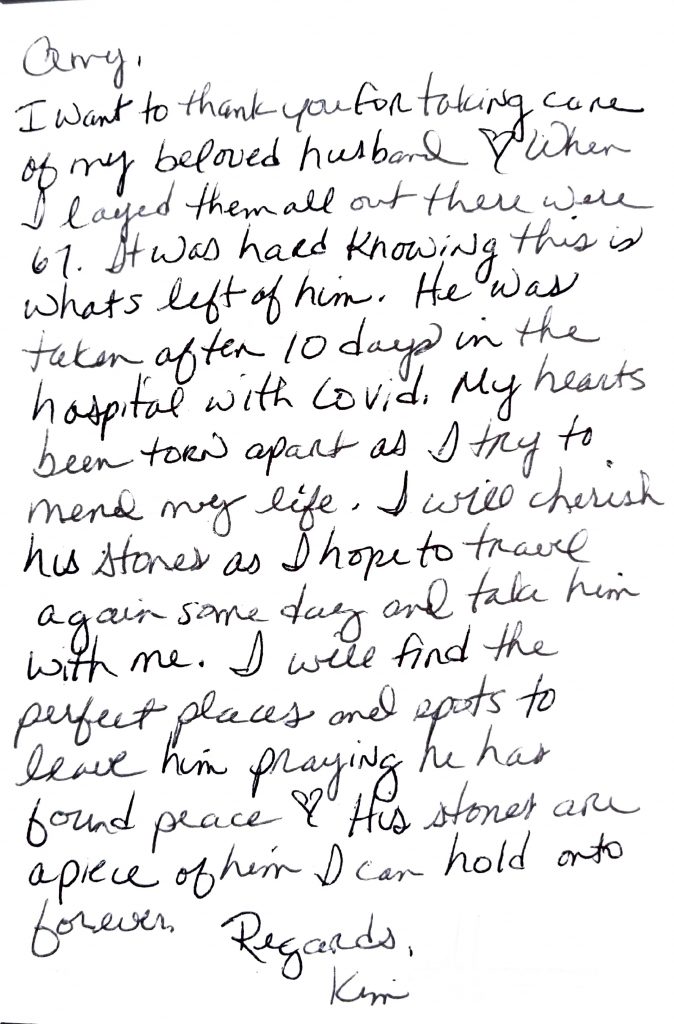 Amy,
I want to thank you for taking care
of my beloved husband ♡ When
I layed them all out there were
67. It was hard knowing this is
whats left of him. He was
taken after 10 days in the
hospital with Covid. My hearts
been torn apart as I try to
mend my life. I will cherish
his stones as I hope to travel
again some day and take him
with me. I will find the
perfect places and spots to
leave him praying he has
found peace ♡ His stones are
a piece of him I can hold onto
forever.
Regards,
Kim